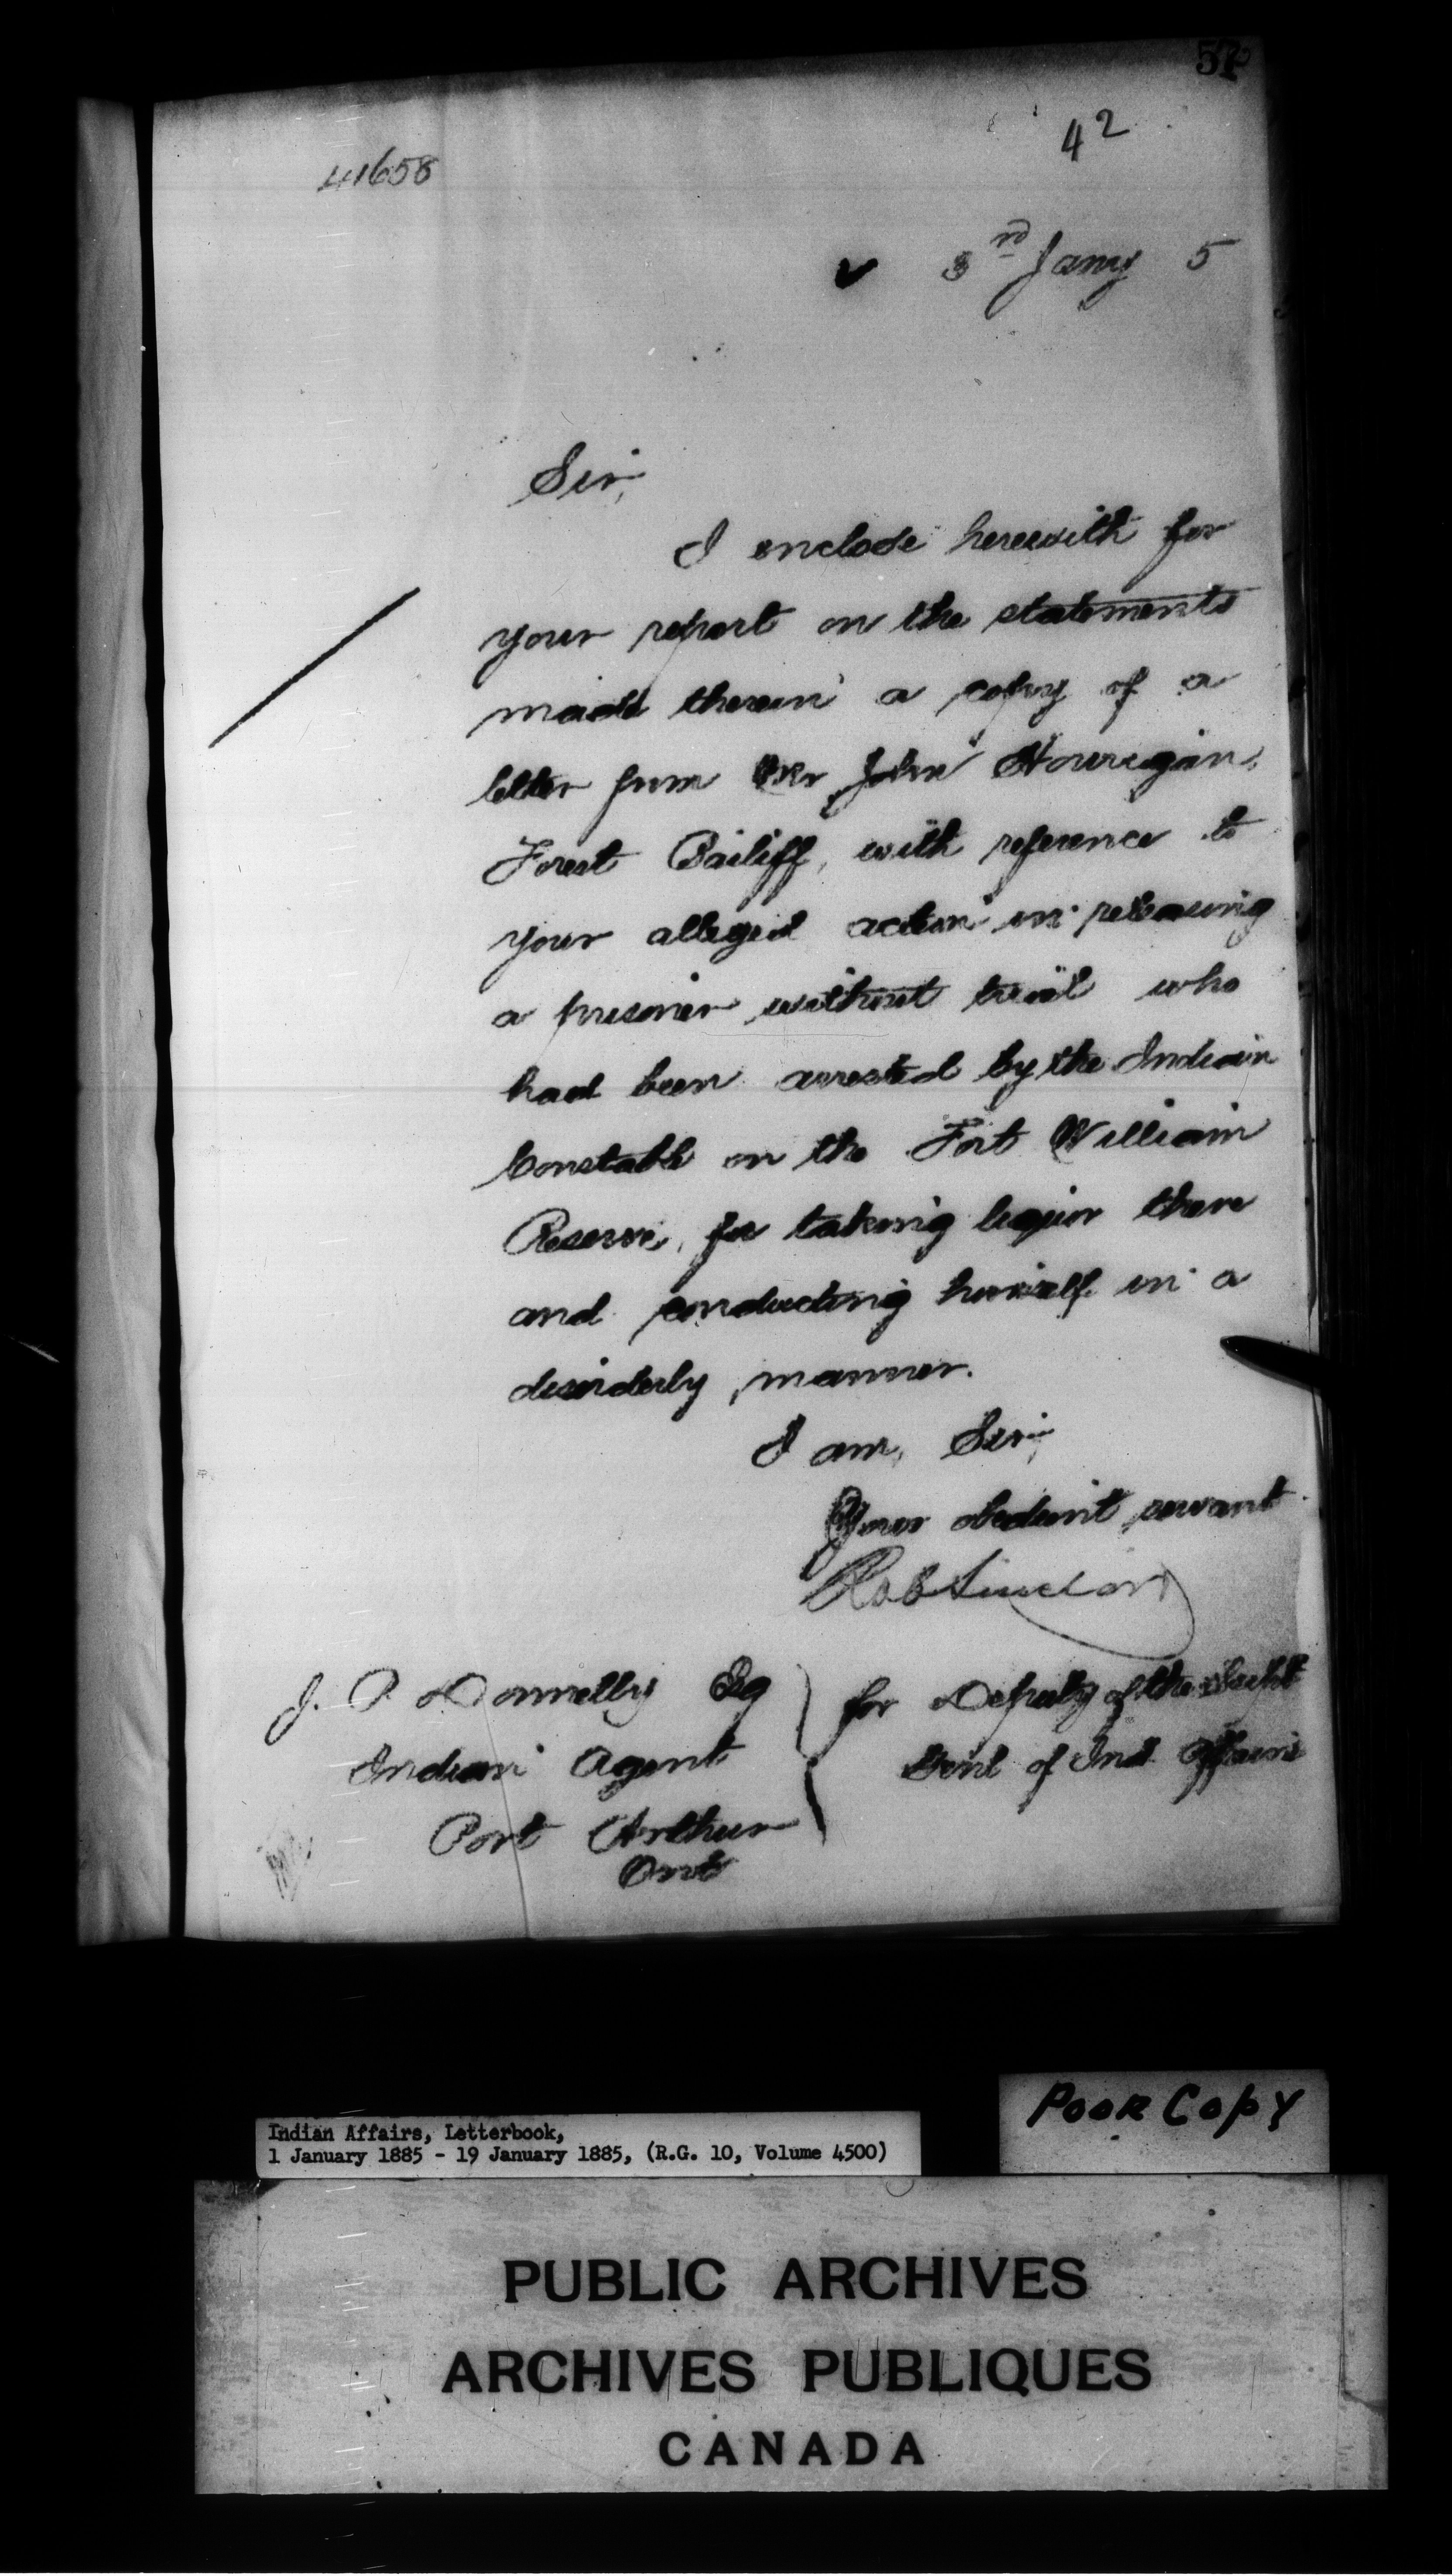 42
41658
3rd Jany 5
Sir,
I enclose herewith for
your report on the statements
made therein a copy of a
letter from Mr John Hourigan,
Forest Bailiff, with reference to
your alleged action in releasing
a prisoner without trial who
had been arrested by the Indian
Constable on the Fort William
Reserve, for taking liquor there
and conducting himself in a
disorderly manner.
I am, Sir,
Your obedient servant
Rob Sinclair
J. P. Donnelly Esq
Indian Agent
Port Arthur
Ont
for Deputy of the Supt
Genl of Ind Affairs
Poor Copy
Indian Affairs, Letterbook,
1 January 1885 - 19 January 1885, (R.G. 10, Volume 4500)
PUBLIC ARCHIVES
ARCHIVES PUBLIQUES
CANADA